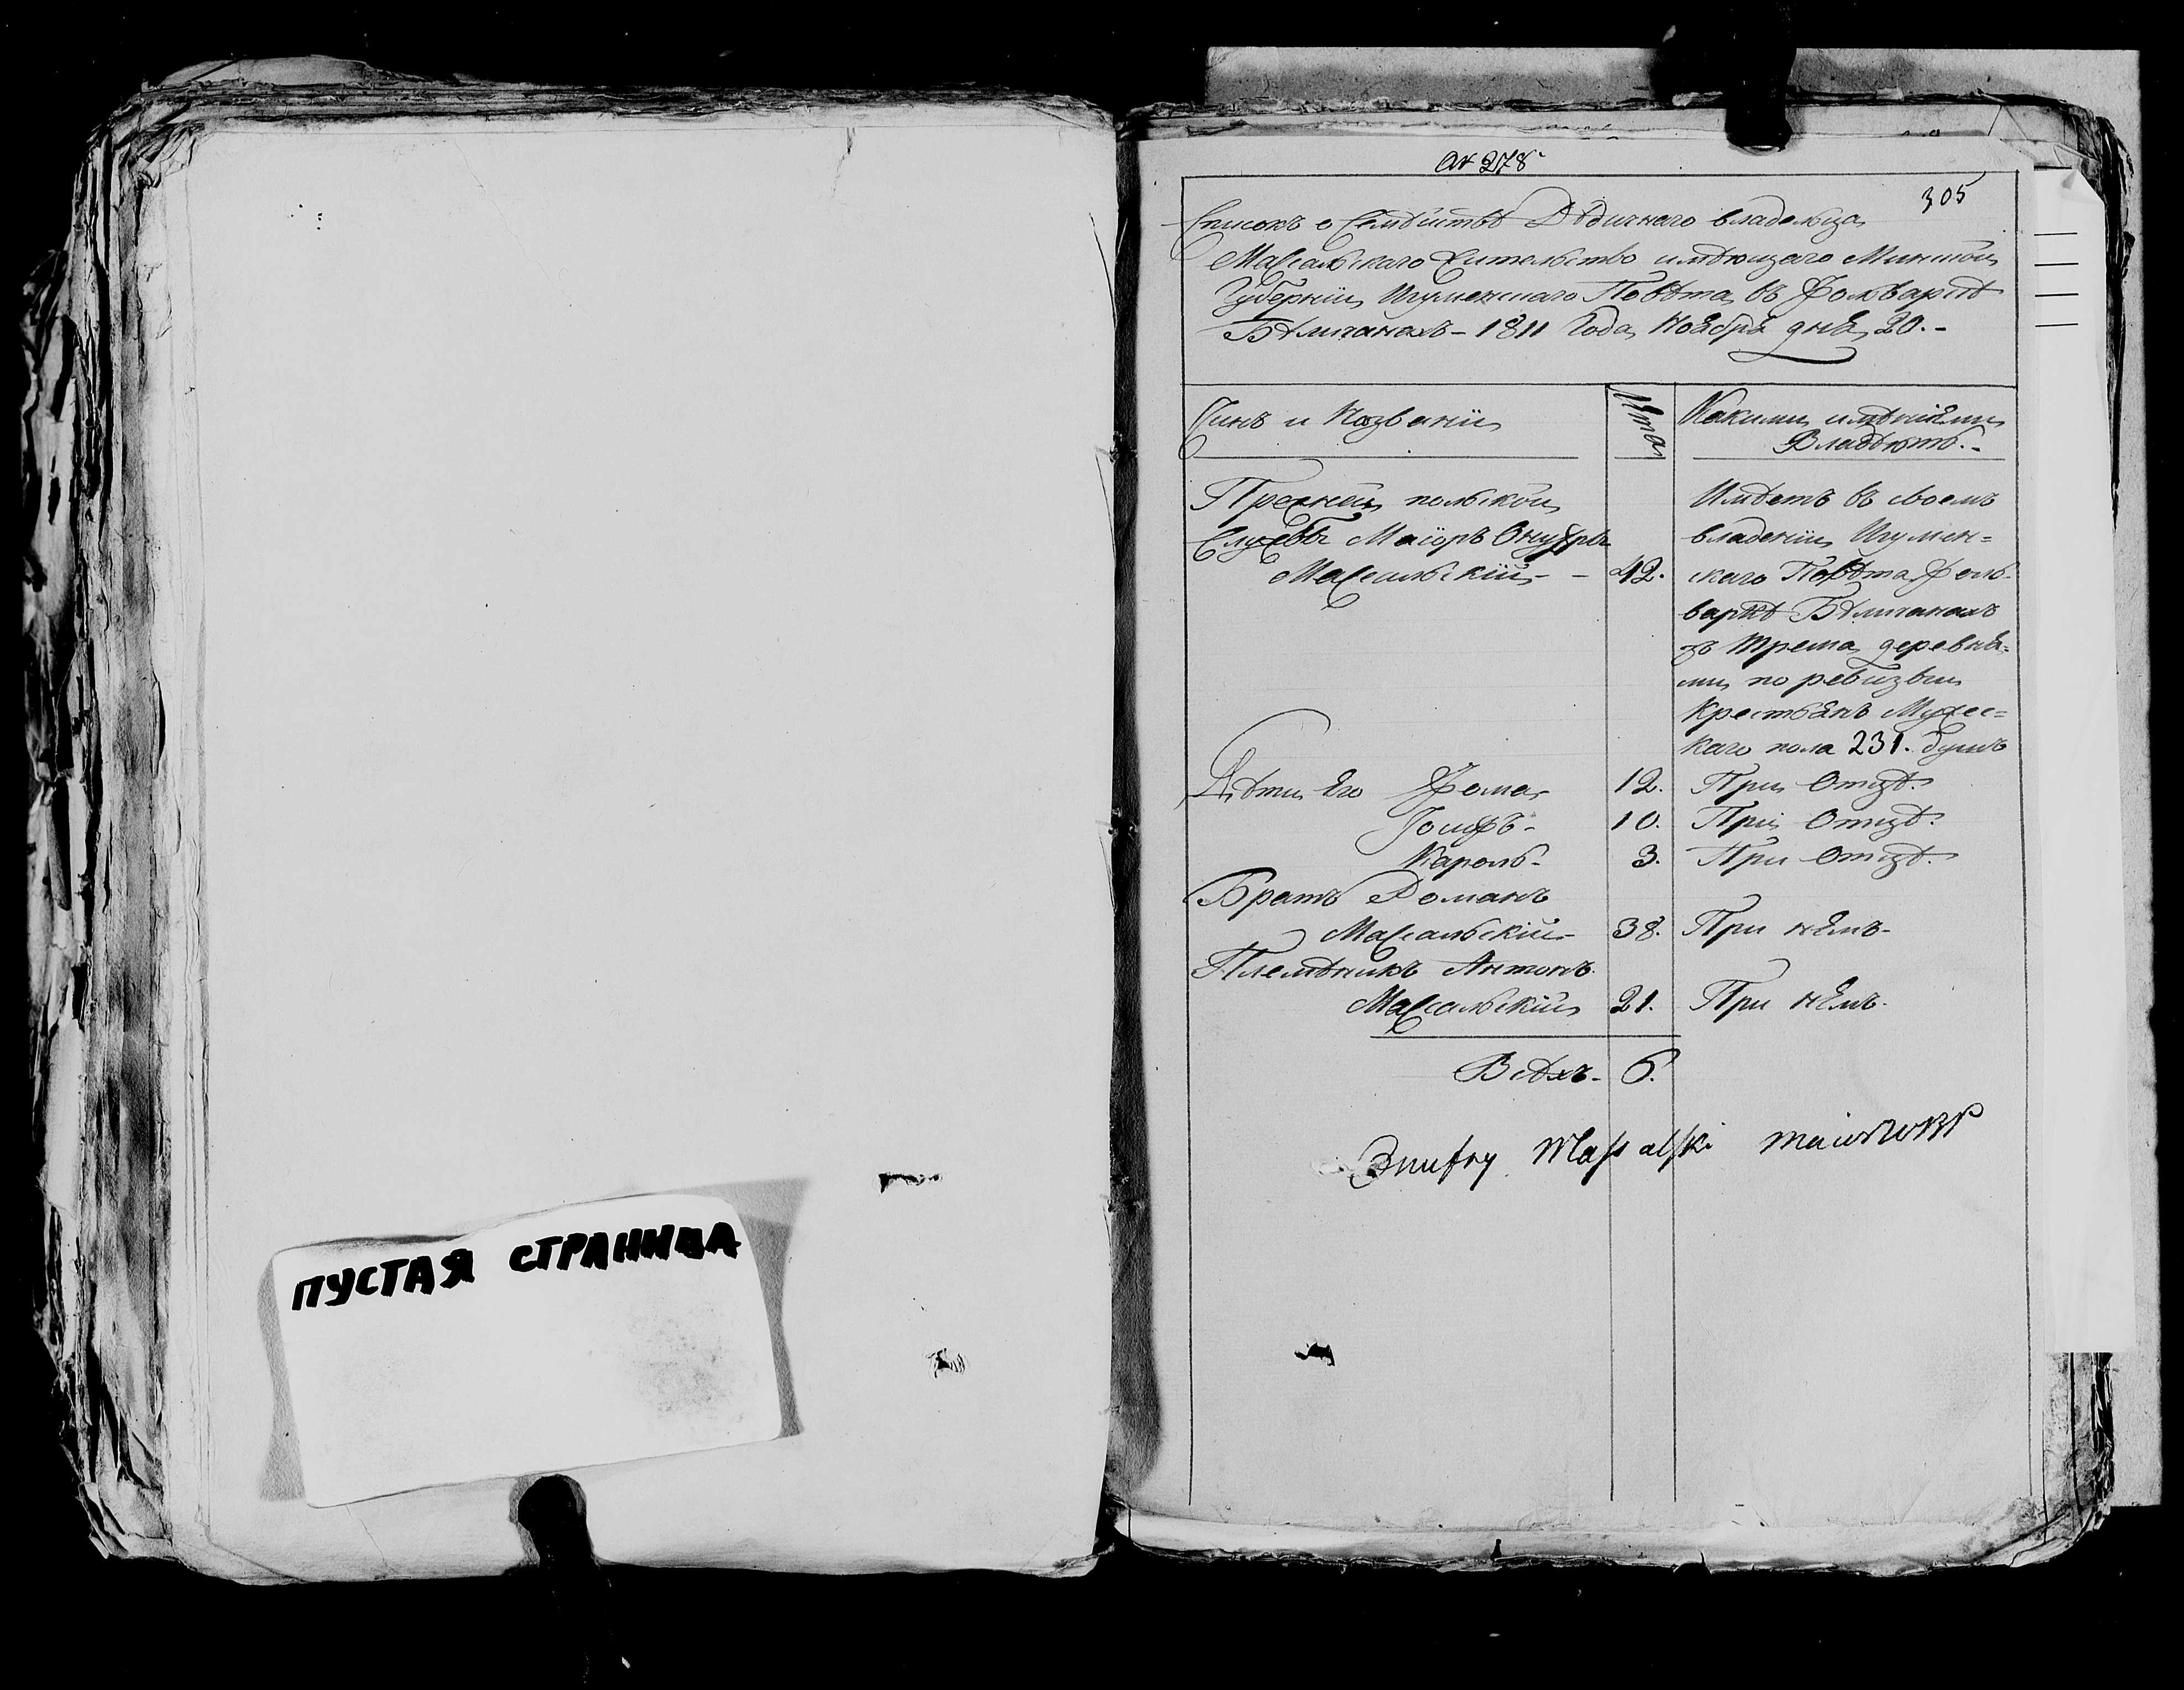 ПУСТАЯ СТРАНИЦА
№ 278
305
Списокъ о Семѣйствѣ Дѣдичнаго владельца
Массальскаго Жительство имѣющаго Минской
Губерніи Игуменскаго Повѣта въ Фольваркѣ
1811 Года Ноября дня 20.-
Чинъ и Названіи
Лѣта
Какими имѣніями
Владѣютъ.-
Прежней польской
Службы Маіоръ Онуфры
Массальскій - - 42.
Имѣетъ въ своемъ
владеніи Игумен=
скаго Повѣта Фоль-
варкѣ
зъ трема деревня=
ми по ревизыи
крестьянъ Мужес=
каго пола 231. душъ
Дѣти Его Фома 12. При Отцѣ.
Іосифъ- 10. При Отцѣ.
Кароль- 3. При Отцѣ.
Братъ Романъ
Массальскій- 38. При нѣмъ-
Племѣникъ Антонъ
Массальскій 21. При нѣмъ.
Всѣхъ- 6.
Onufry Massalski maior WXL